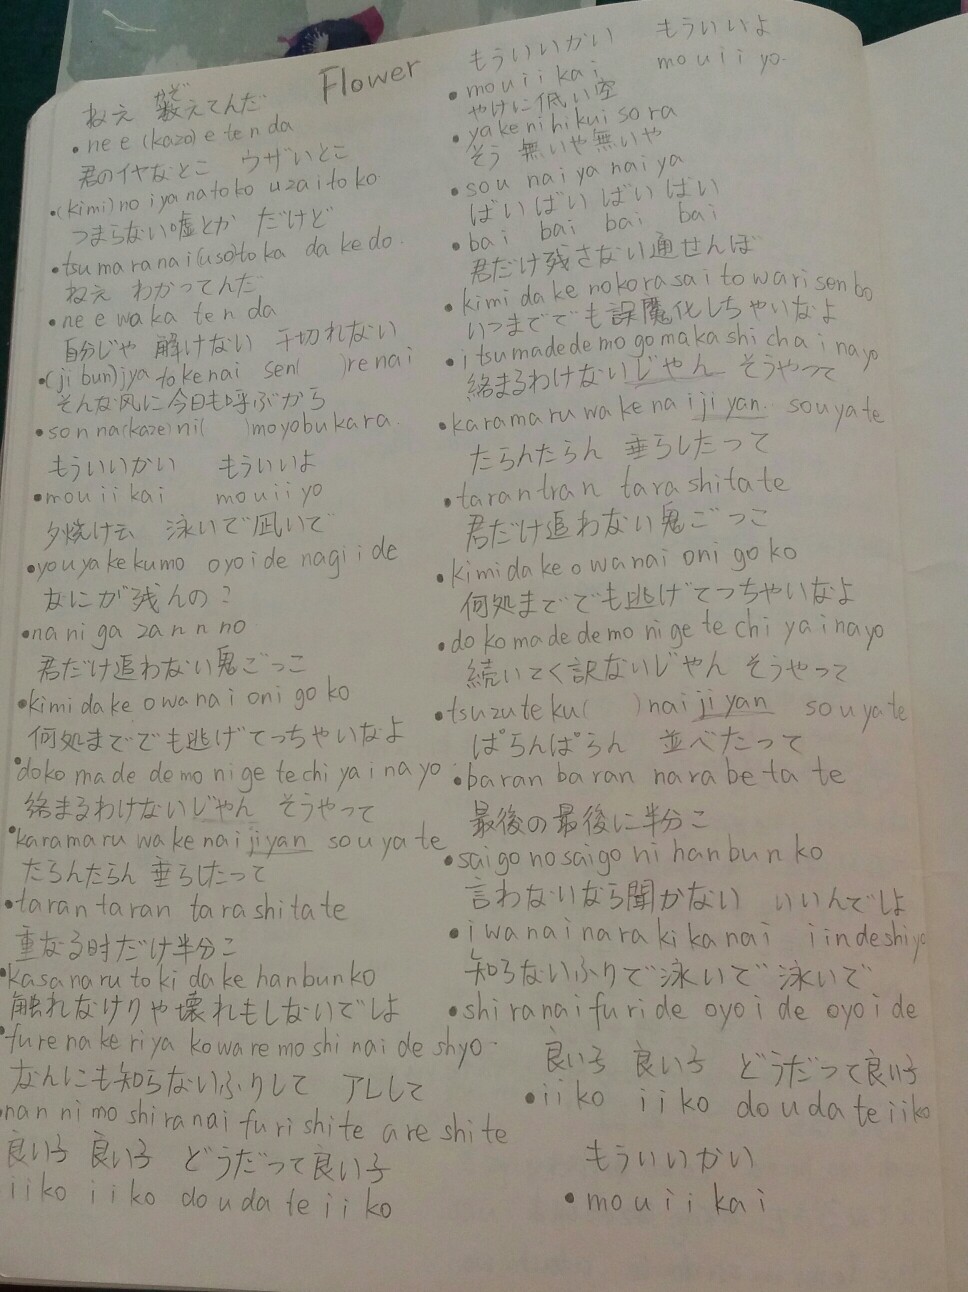 Flower
ねえ 数えてんだ
かぞ
nee (kazo)e ten da
君のイヤなとこ ウザいとこ
(kimi)no iyanatoko uzaitoko
つまらない嘘とか だけど
tsumaranai(uso)toka dakedo.
ねえ わかってんだ
nee waka ten da
自分じゃ 解けない 千切れない
(jibun)jya tokenai sen( )renai
そんな风に今日も呼ぶから
sonna(kaze)ni( )moyobukara.
もういいかい もういいよ
mouiikai mouiiyo
夕焼け云 泳いで凪いで
youyakekumo oyoide nagiide
なにが残んの?
naniga zannno
君だけ追わない鬼ごっこ
kimidake owanai onigoko
何処まででも逃げてっちゃいなよ
doko made demo nigetechiyainayo
絡まるわけないじゃん そうやって
karamaru wakenaijiyan souyate
たらんたらん 垂らしたって
taran taran tarashitate
重なる时だけ半分こ
kasanaru tokidake hanbunko
触れなけりゃ壊れもしないでしょ
furenakeriya kowaremoshinaideshyo.
なんにも知らないふりして アレして
nannimo shiranai furishite areshite
良い子 良い子 どうだって良い子
iiko iiko doudateiiko
もういいかい もういいよ
mouiikai mouiiyo.
やけに低い空
yakenihikuisora
そう 無いや無いや
sou naiyanaiya
ばいばいばいばい
bai bai bai bai
君だけ残さない通せんぼ
kimidake nokorasaitowarisenbo
いつまででも誤魔化しちゃいなよ
itsumadedemogomakashichainayo
絡まるわけないじゃん そうやって
karamaruwakenaijiyan. souyate
たらんたらん 垂らしたって
tarantran tarashitate
君だけ追わない鬼ごっこ
kimidakeowanai onigoko
何処まででも逃げてっちゃいなよ
dokomadedemonigetechiyainayo
続いてく訳ないじゃん そうやって
tsuzuteku( )naijiyan souyate
ぱらんぱらん 並べたって
baranbaran narabetate
最後の最後に半分こ
saigonosaigonihanbunko
言わないなら聞かない いいんでしょ
iwanainarakikanai iindeshiyo
知らないふりで泳いで泳いで
shiranaifuride oyoide oyoide
良い子 良い子 どうだって良い子
iiko iiko doudateiiko
もういいかい
mouiikai